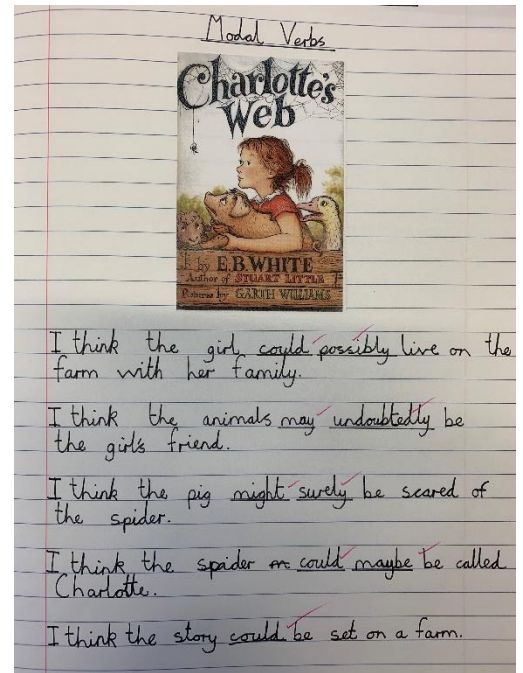 Modal Verbs
Charlotte's
Web
by E.B. WHITE
Author of STUART LITTLE
Pictures by GARTH WILLIAMS
I think the girl could possibly live on the
farm with her family.
I think the animals may undoubtedly be
the girl's friend.
I think the pig might surely be scared of
the spider.
I think the spider could maybe be called
Charlotte.
I think the story could be set on a farm.